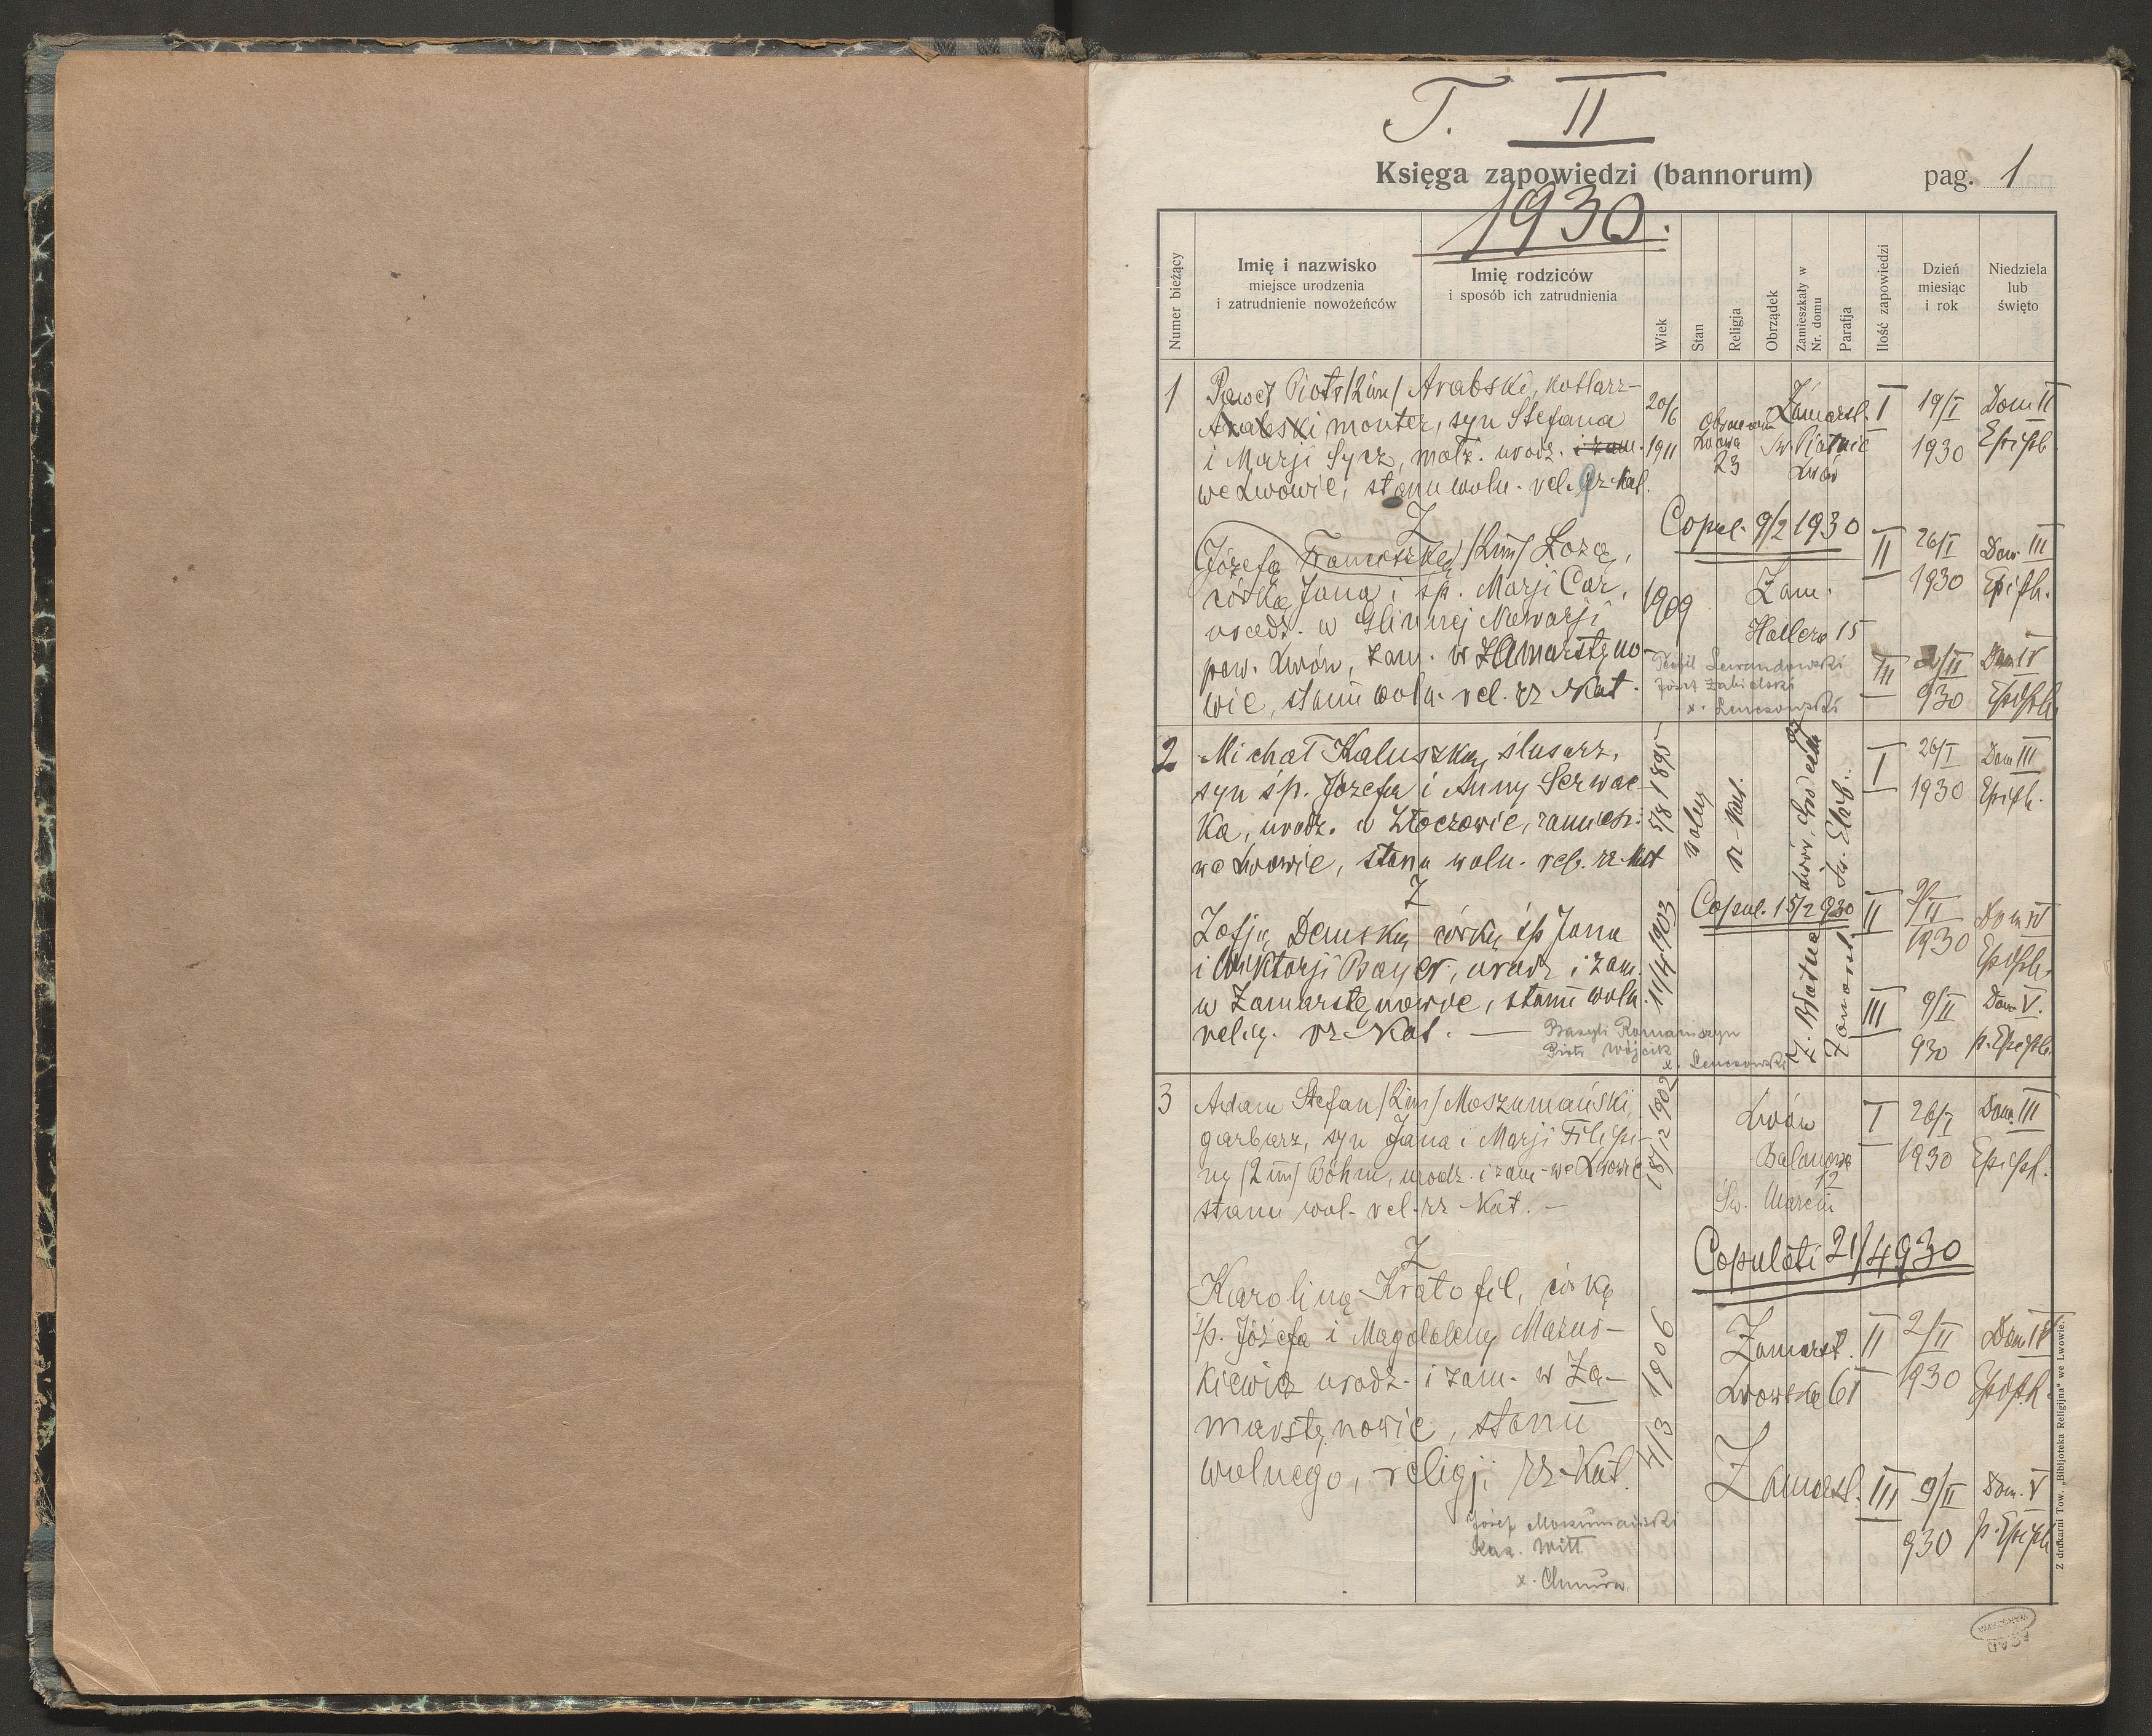 T. II
Księga zapowiedzi (bannorum)
pag. 1
1930.
Numer bieżący
Imię i nazwisko
miejsce urodzenia
i zatrudnienie nowożeńców
Imię rodziców
i sposób ich zatrudnienia
Wiek
Stan
Religja
Obrządek
Zamieszkały w
Nr. domu
Parafja
Ilość zapowiedzi
Dzień
miesiąc
i rok
Niedziela
lub
święto
1
Paweł Piotr /2 im/ Arabski, kotlarz-
Arabski monter, syn Stefana
i Marji Sycz, małż. urodz. i zam.
we Lwowie, stanu woln. rel. gr kat.
20/6
1911
Obrońców
Lwowa
23
Zamarst.
Lwów
I
19/I
1930
Dom II
Epiph.
Z
Józefą Franciszką /2 im/ Łozą,
córką Jana i śp. Marji Car,
urodz. w Glinnej Nawarji
pow. Lwów, zam. w Zamarstyno-
wie, stanu woln. rel. rz kat.
1909
Copul. 9/2 1930
Zam.
Hallera 15
II
26/I
1930
Dom III
Epiph.
Teofil Lewandowski
Józef Zabielski
x. Lenczowski
III
2/II
930
Dom IV
Epiph.
2
Michał Kaluszka, ślusarz,
syn śp. Józefa i Anny Serwac-
ka, urodz. w Złoczowie, zamiesz.
we Lwowie, stanu woln. rel. rz kat
5/8 1895
wolny
rz kat.
Św. Elżb.
I
26/I
1930
Dom III
Epiph.
Z
Zofją Demską córką śp Jana
i Wiktorji Bayer, urodz i zam.
w Zamarstynowie, stanu woln.
relig. rz kat. —
11/4 1903
Copul. 15/2 930
Zamarst.
II
2/II
1930
Dom IV
Epiph.
III
9/II
930
Dom V.
p. Epiph.
Bazyli Romaniszyn
Piotr Wójcik
x. Lenczowski
3
Adam Stefan /2 im/ Moszumański,
garbarz, syn Jana i Marji Filipi-
ny /2 im/ Böhm, urodz. i zam. we Lwowie
stanu wol. rel. rz kat. —
18/12 1902
Lwów
Balonowa
12
Św. Marcin
I
26/I
1930
Dom. III
Epiph.
Z
Karoliną Kratofil, córką
śp. Józefa i Magdaleny Mazur-
kiewicz urodz. i zam. w Za-
marstynowie, stanu
wolnego, religji rz-kat.
4/3 1906
Copulati 21/4 930
Zamarst.
Lwowska 61
II
2/II
1930
Dom IV
Epiph.
Zamarst.
III
9/II
930
Dom. V
p. Epiph
Józef Moszumański
Kaz. Witt
x. Chmura.
Z drukarni Tow. „Bibljoteka Religijna" we Lwowie.
AGAD
WARSZAWA